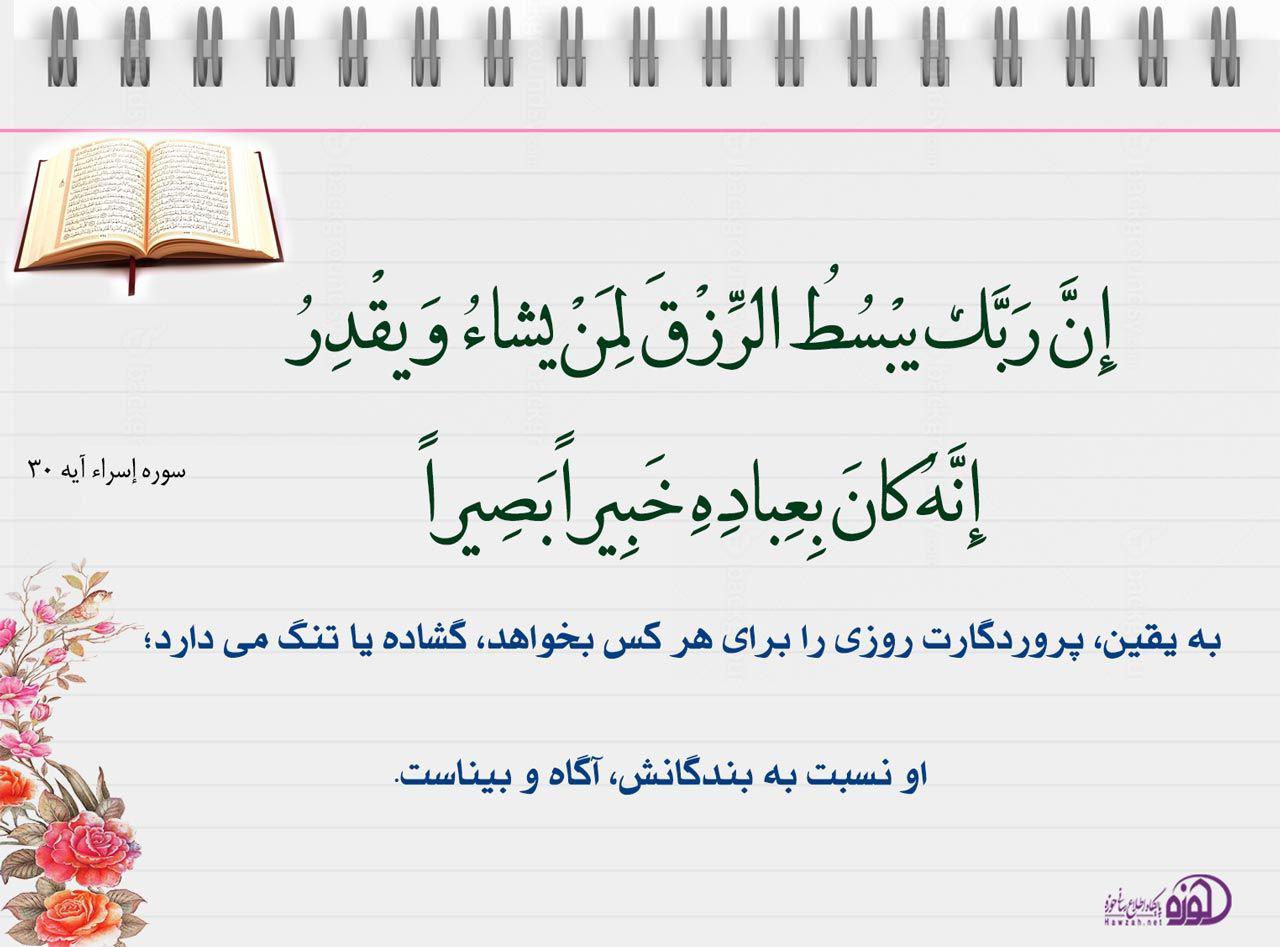 إِنَّ رَبَّكَ يبْسُطُ الرِّزْقَ لِمَنْ يشاءُ وَ يقْدِرُ
إِنَّهُ كانَ بِعِبادِهِ خَبِيراً بَصِيراً
سوره إسراء آیه ۳۰
به یقین، پروردگارت روزی را برای هر کس بخواهد، گشاده یا تنگ می دارد؛
او نسبت به بندگانش، آگاه و بیناست.
حوزه
پایگاه اطلاع رسانی حوزه
Hawzah.net